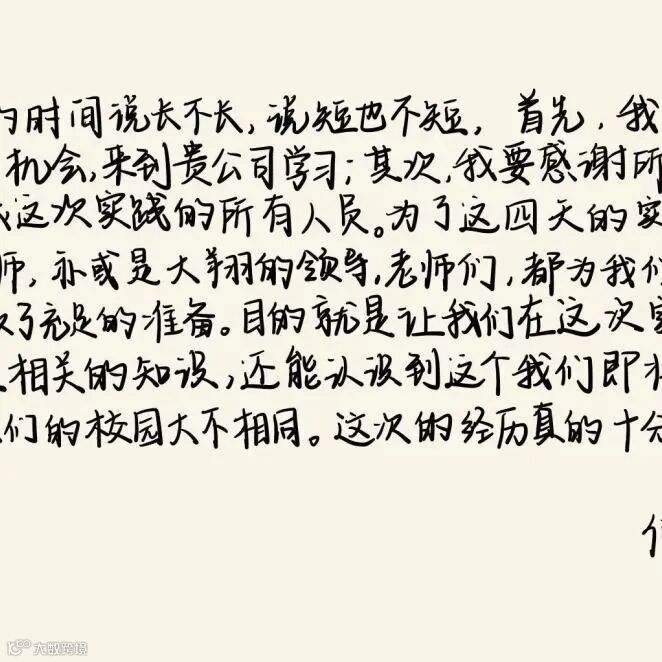 的时间说长不长,说短也不短, 首先,我
机会,来到贵公司学习;其次,我要感谢所
这次实践的所有人员。为了这四天的实
师,亦或是大翔的领导,老师们,都为我们
了充足的准备。目的就是让我们在这次实
相关的知识,还能认识到这个我们即将
们的校园大不相同。这次的经历真的十分
大数跨境